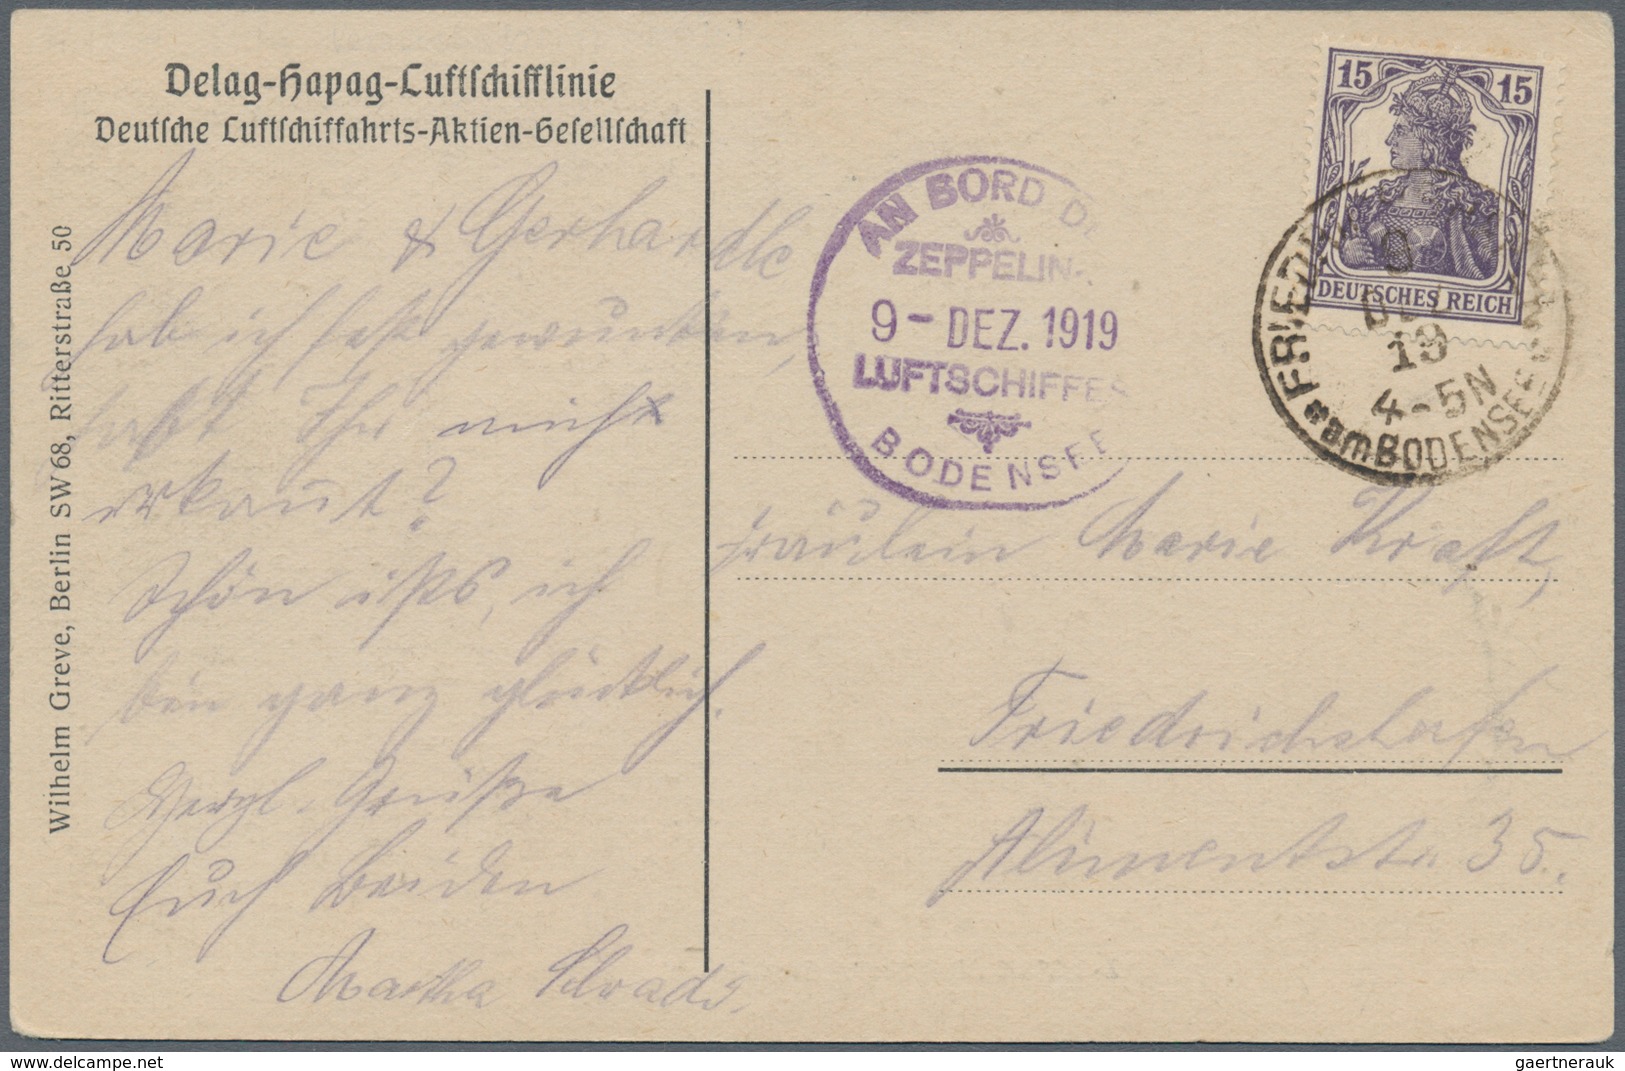 Delag-Hapag-Luftschifflinie
Deutsche Luftschiffahrts-Aktien-Gesellschaft
Wilhelm Greve, Berlin SW 68, Ritterstraße 50
Marie & Gerhardle
hab ich fest gewunken,
habt Ihr mich
erkannt?
Schön ists, ich
bin ganz glücklich.
Herzl. Grüße
Euch beiden
Martha
AN BORD DE
ZEPPELIN-
9 - DEZ. 1919
LUFTSCHIFFES
BODENSEE
15 15
DEUTSCHES REICH
FRIEDRICHSHAFEN
9
DEZ
19
4-5N
am BODENSEE
Fräulein Marie Kraft,
Friedrichshafen
35.
www.delcampe.net
gaertnerauk